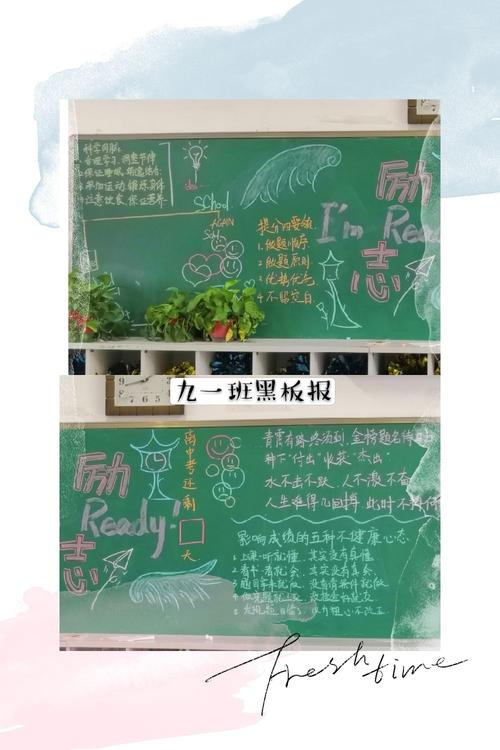 科学用脑:
合理学习,调整节律
保证睡眠,
参加运动,锻炼身体
注意饮食,保证营养
School
AGAIN
提分四要领
1.做题顺序
2.做题原则
3.优势优先
4.不留空白
I'm Rea
励
志
九一班黑板报
励
Ready!
志
离中考还剩
天
青霄有路终须到,金榜题名
种下“付出”“收获”杰出:
水不击不跃,人不激不奋
人生难得几回搏,此时不搏待
影响成绩的五种不健康心态
1.上课一听就懂,其实没有真懂
2.看书一看就会,其实没有真会
3.题目拿来就做,没有看条件就做
Fresh time